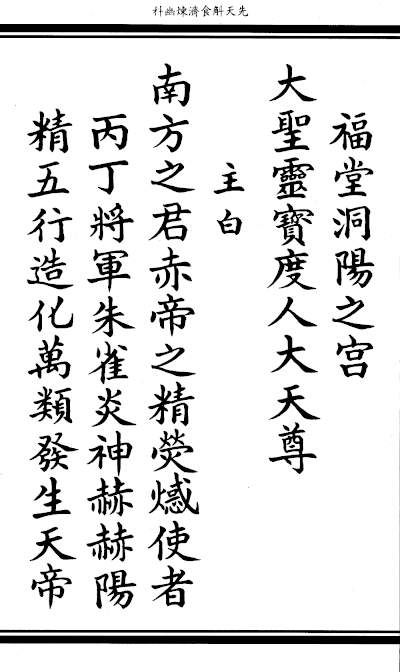 先天斛食濟煉幽科
福堂洞陽之宮
大聖靈寶度人大天尊
主白
南方之君赤帝之精熒使者
丙丁將軍朱雀炎神赫赫陽
精五行造化萬類發生天帝